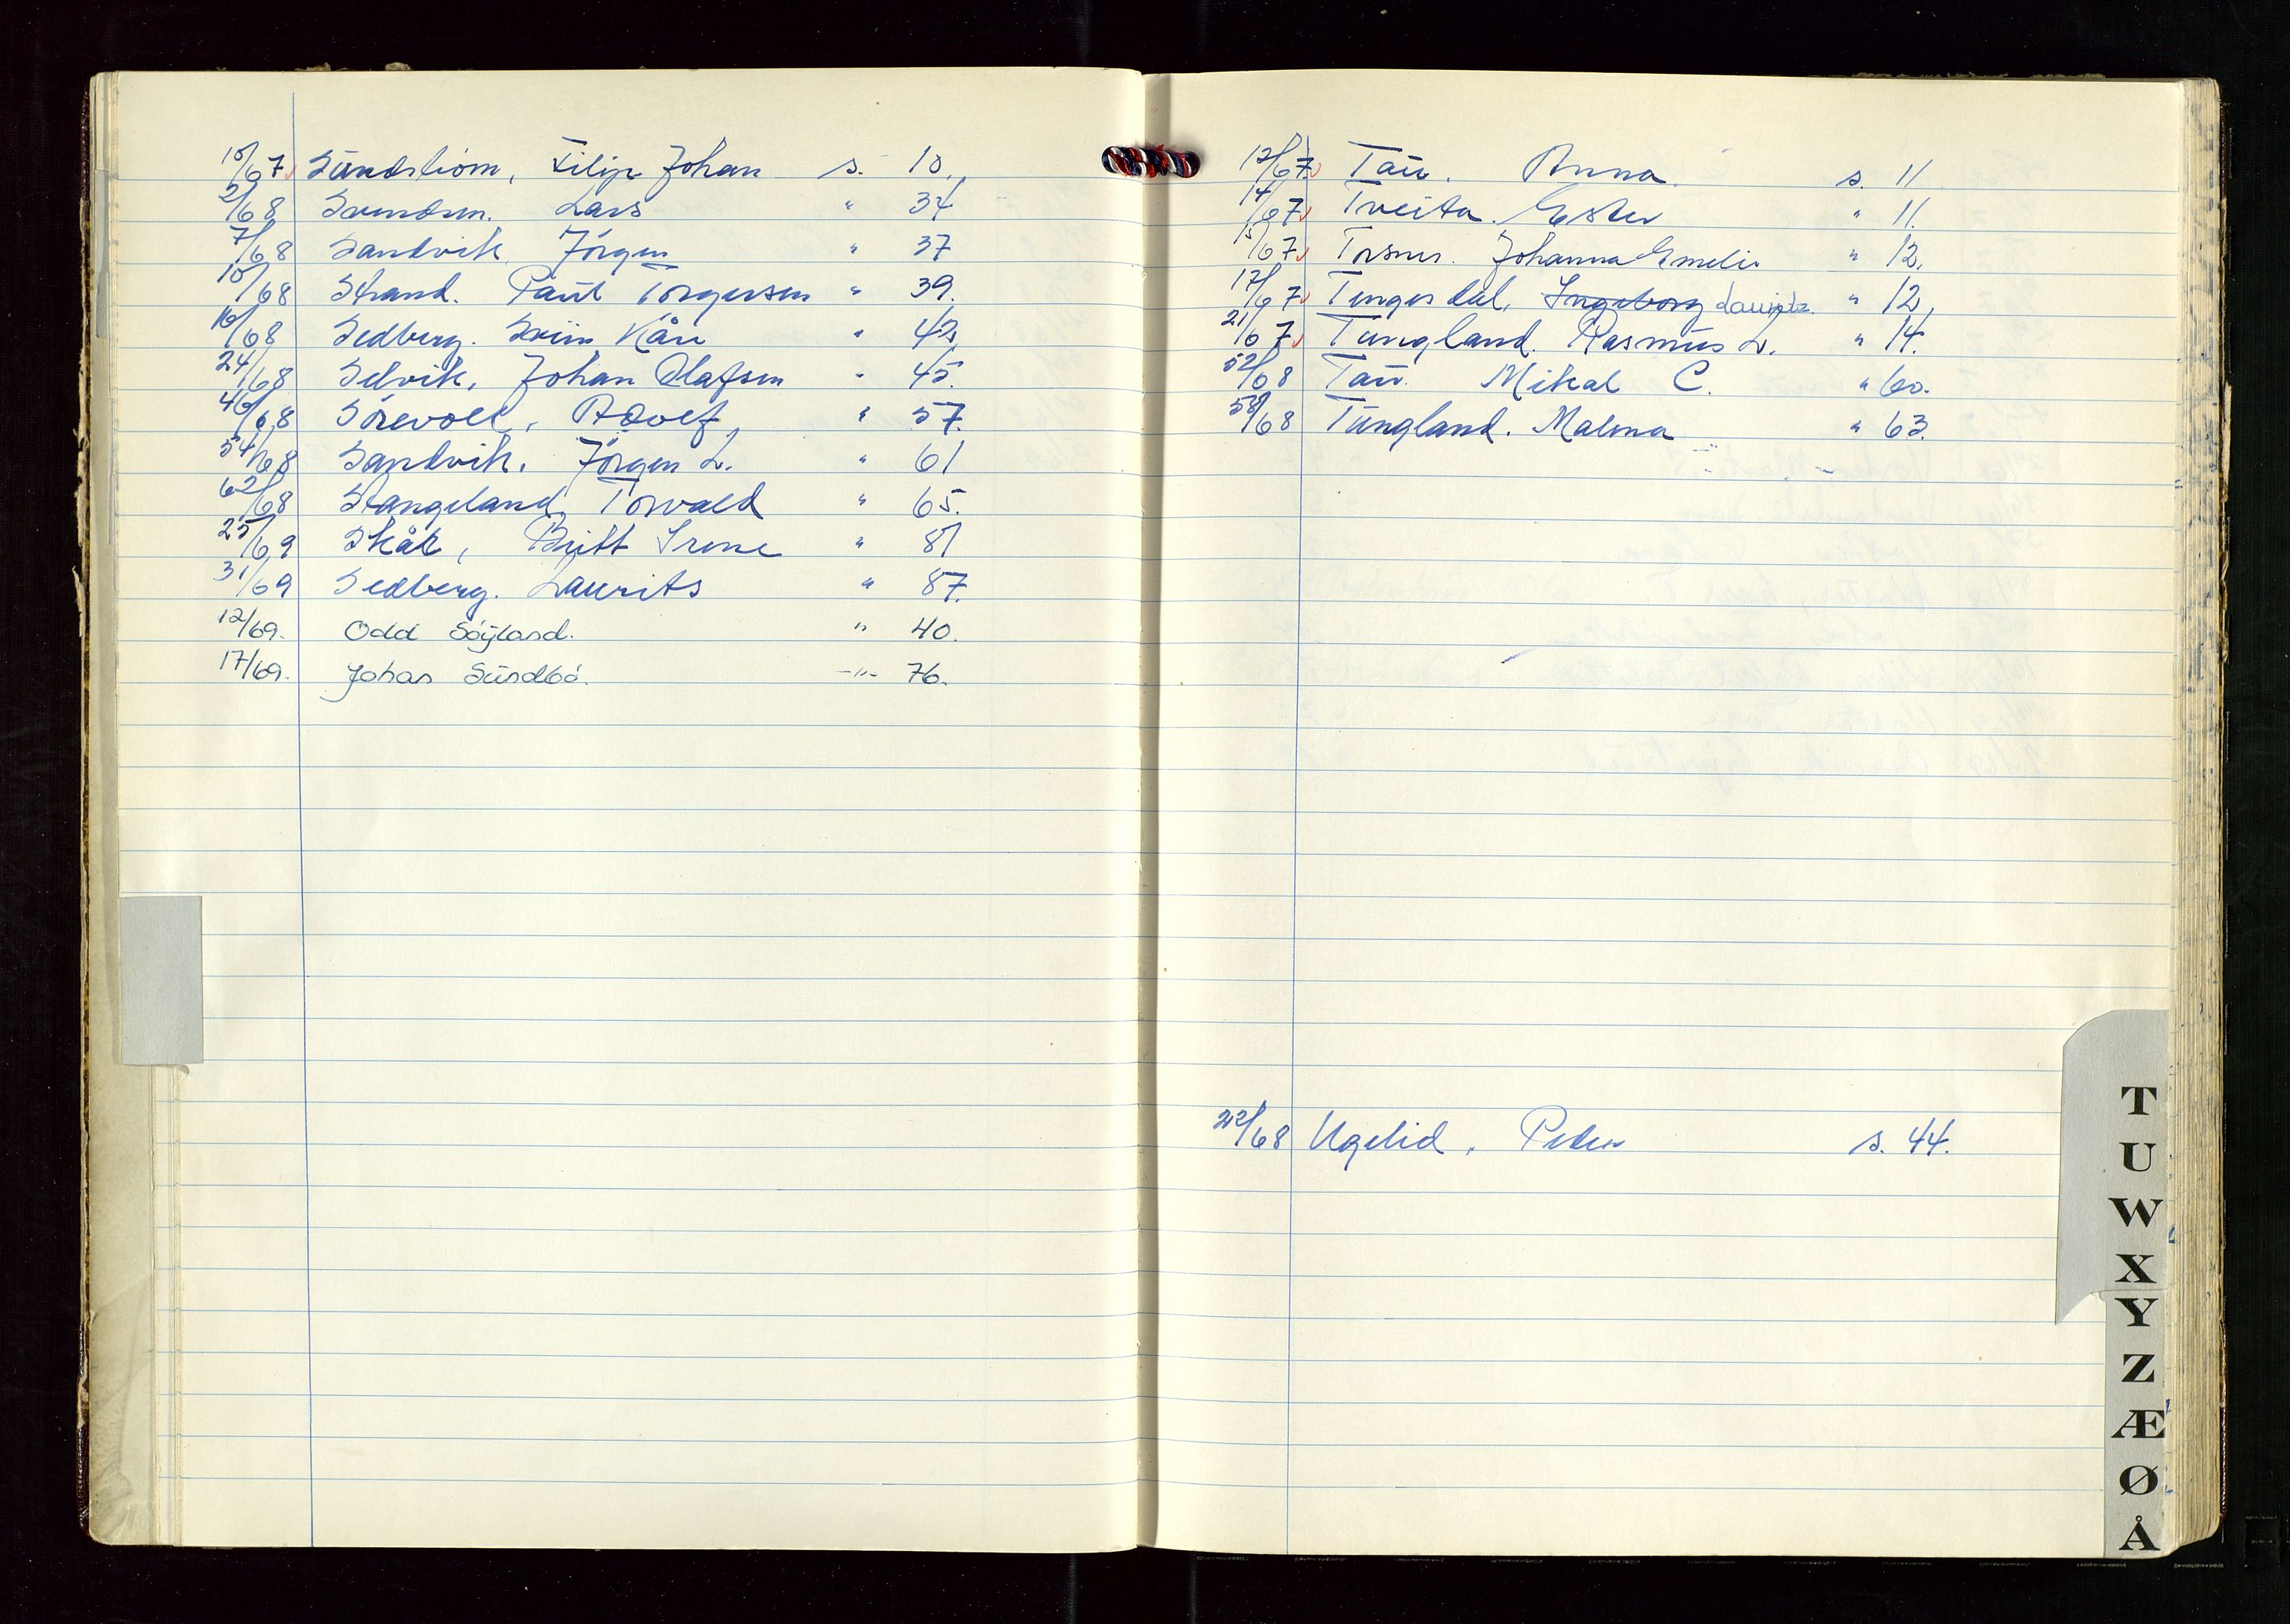 10/67 Sundstrøm, Filip Johan s. 10.
2/68 Svendsen. Lars " 34
7/68 Sandvik Jörgen " 37
10/68 Strand. Paul Torgersen " 39.
16/68 Sedberg. Svein Kåre " 42.
24/68 Selvik, Johan Olafsen " 45.
46/68 Sörevoll, Adolf " 57.
54/68 Sandvik, Jörgen L. " 61
62/68 Stangeland, Torvald " 65.
25/69 Skår, Britt Irene " 81
31/69 Sedberg. Laurits " 87.
12/69. Odd Söyland. " 40.
17/69. Johan Sundbö. -"- 76.
12/67 Tau. Anna s. 11
14/67 Tveita. Ester " 11.
15/67 Torsnes. Johanna Emelie " 12.
17/67 Tengesdal, Ingeborg Lauritz. " 12.
21/67 Tungland. Rasmus L. " 14.
52/68 Tau. Mikal C. " 60.
58/68 Tungland. Malena " 63.
22/68 Ugelid, Peder s. 44.
T
U
W
X
Y
Z
Æ
Ø
Å